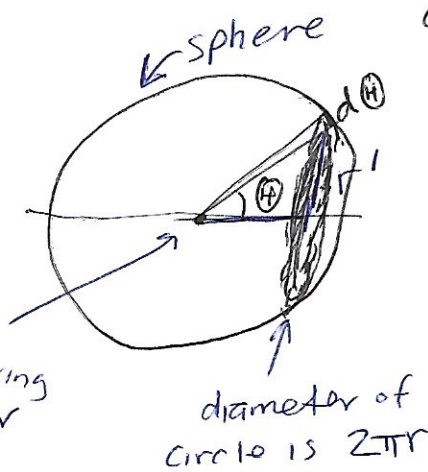 sphere
dⒽ
Ⓗ
r'
ing
r
diameter of
circle is 2πr